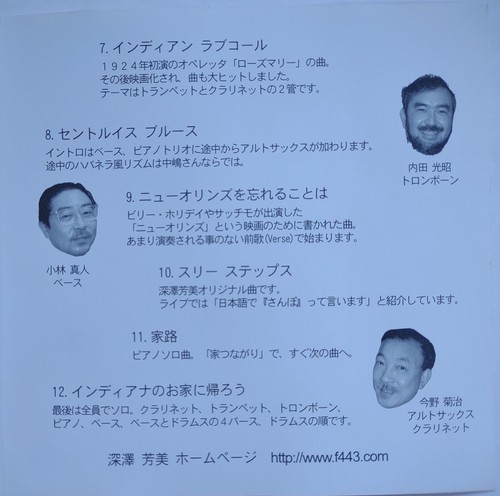 7. インディアン ラブコール
１９２４年初演のオペレッタ「ローズマリー」の曲。
その後映画化され、曲も大ヒットしました。
テーマはトランペットとクラリネットの２管です。
内田 光昭
トロンボーン
8. セントルイス ブルース
イントロはベース、ピアノトリオに途中からアルトサックスが加わります。
途中のハバネラ風リズムは中嶋さんならでは。
9. ニューオリンズを忘れることは
ビリー・ホリデイやサッチモが出演した
「ニューオリンズ」という映画のために書かれた曲。
あまり演奏される事のない前歌(Verse)で始まります。
小林 真人
ベース
10. スリー ステップス
深澤芳美オリジナル曲です。
ライブでは「日本語で『さんぽ』って言います」と紹介しています。
11. 家路
ピアノソロ曲。「家つながり」で、すぐ次の曲へ。
12. インディアナのお家に帰ろう
最後は全員でソロ。クラリネット、トランペット、トロンボーン、
ピアノ、ベース、ベースとドラムスの４バース、ドラムスの順です。
今野 菊治
アルトサックス
クラリネット
深澤 芳美 ホームページ http://www.f443.com